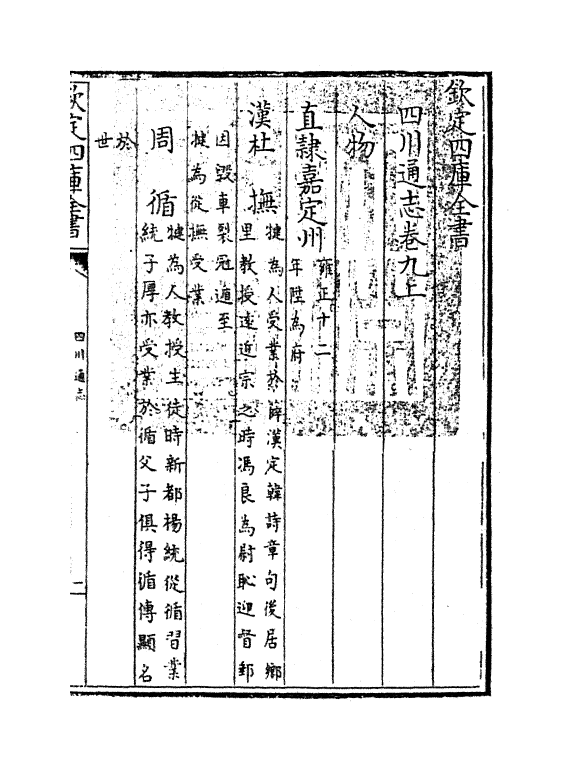 欽定四庫全書
四川通志卷九上
人物
直隸嘉定州雍正十二
年陞為府
漢杜撫犍為人受業於薛漢定韓詩章句後居鄉
里教授遠近宗之時馮良為尉恥迎督郵
因毀車裂冠遁至
犍為從撫受業
周循犍為人教授生徒時新都楊統從循習業
統子厚亦受業於循父子俱得循傳顯名
於
世
欽定四庫全書
四川通志